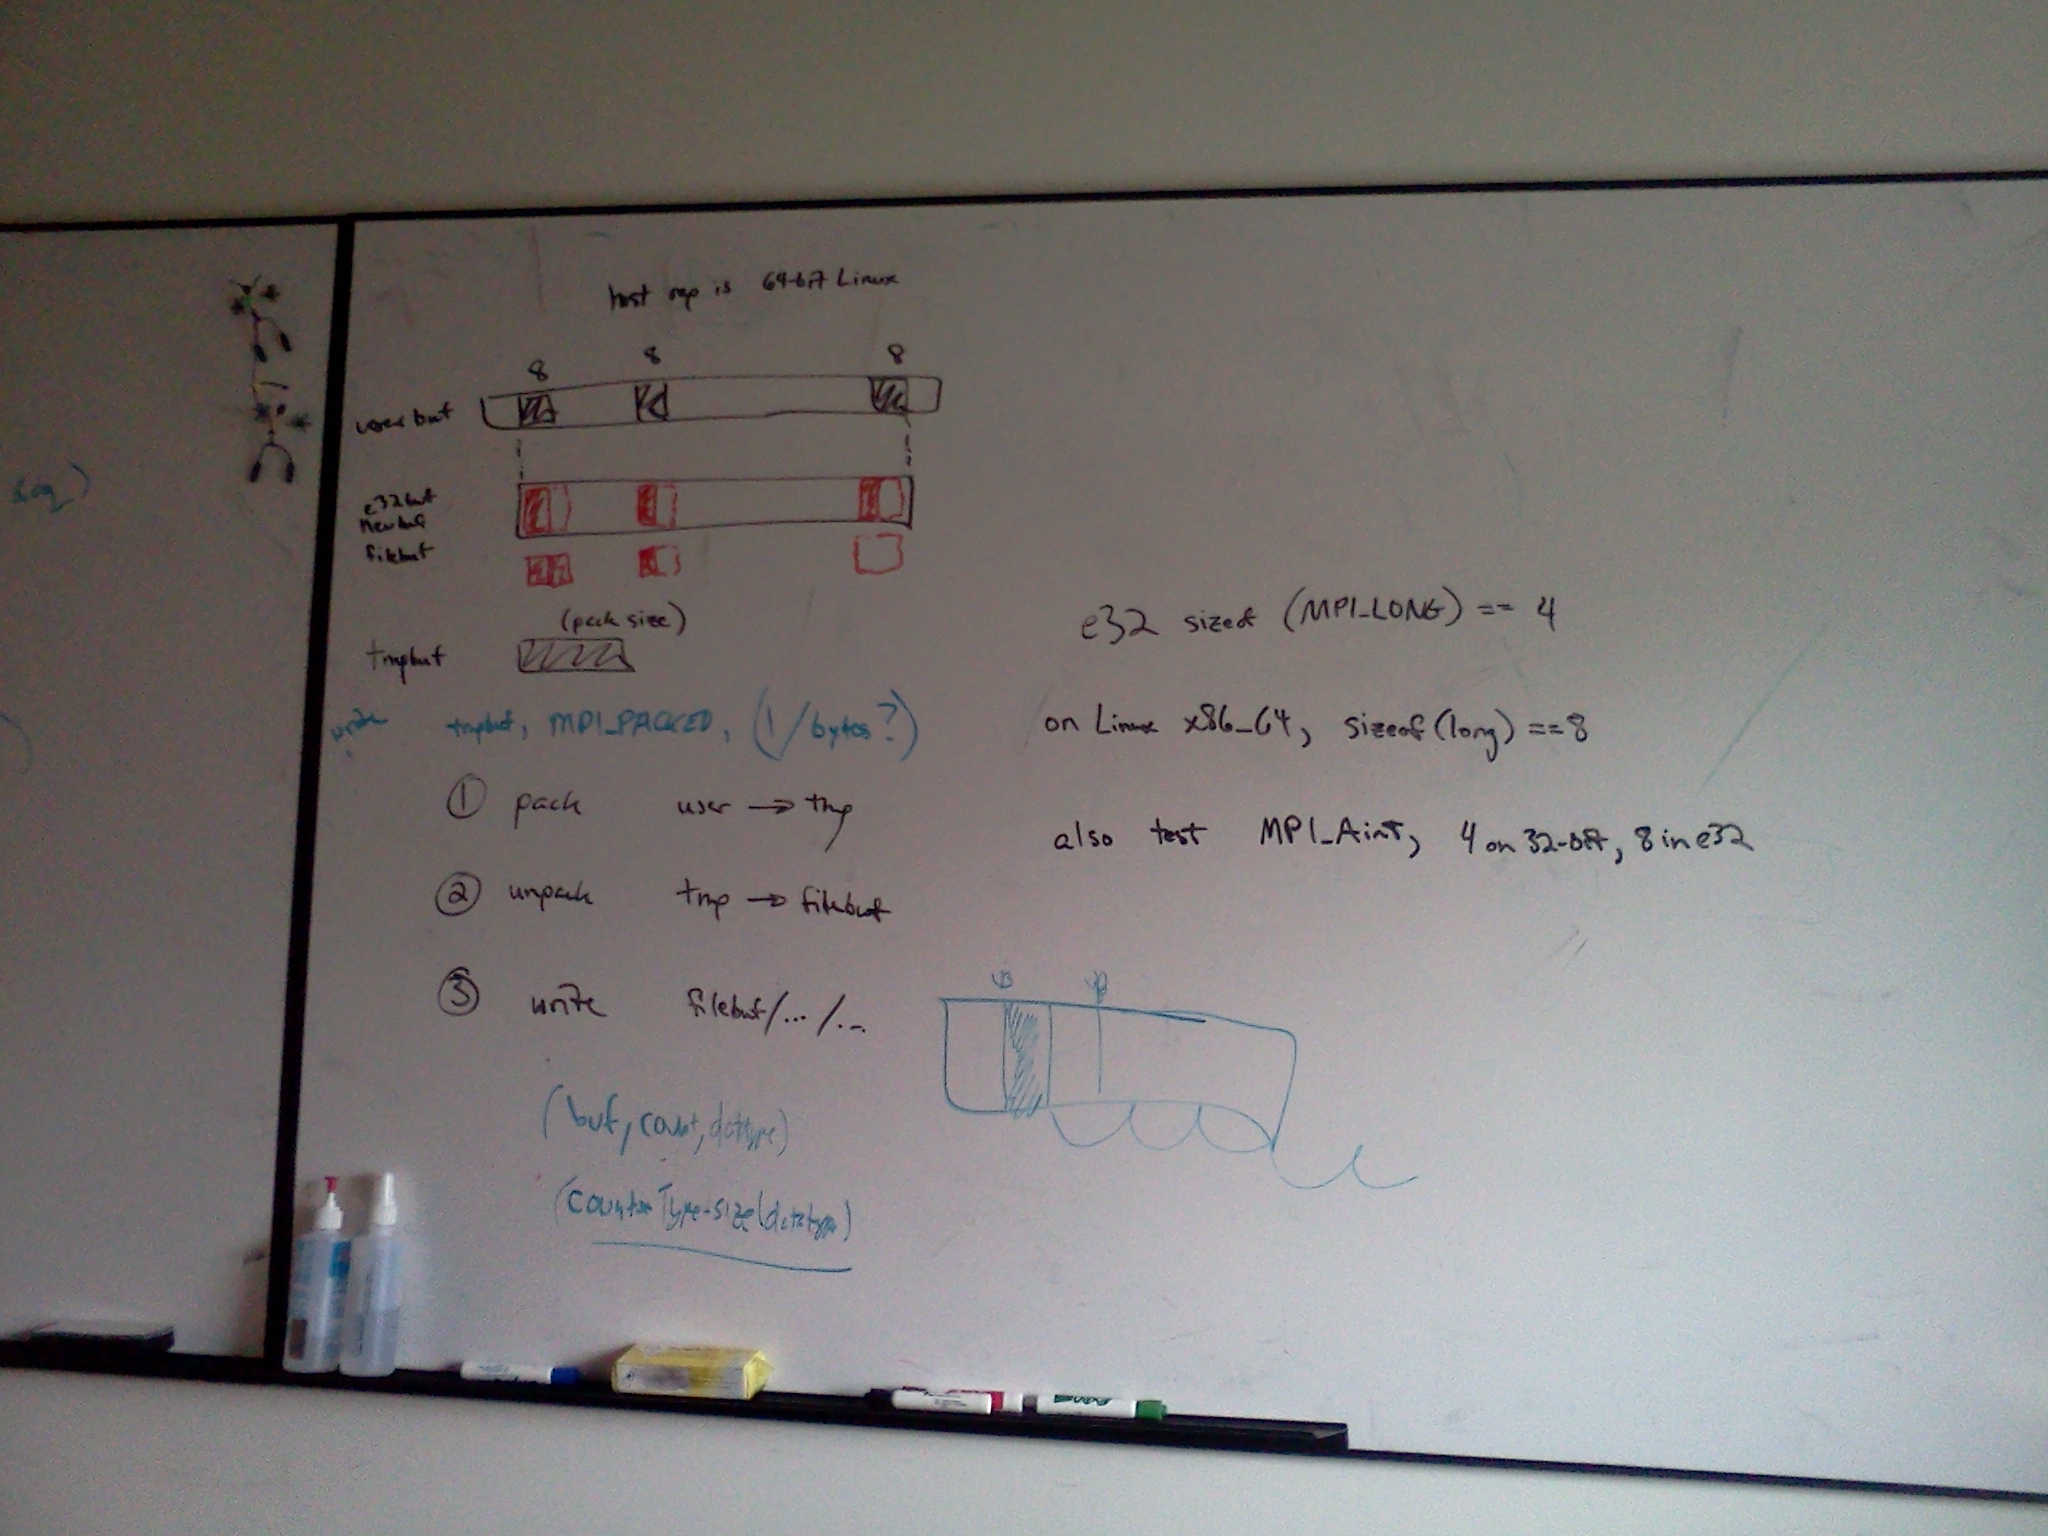 host rep is 64-bit Linux
8 8 8
userbuf
e32buf
newbuf
filebuf
(pack size)
tmpbuf
write tmpbuf, MPI_PACKED, (1/bytes?)
① pack user → tmp
② unpack tmp → filebuf
③ write filebuf/.../...
(buf, count, datatype)
(count* Type-size(datatype)
e32 sizeof (MPI_LONG) == 4
on Linux x86_64, sizeof(long) == 8
also test MPI_Aint, 4 on 32-bit, 8 in e32